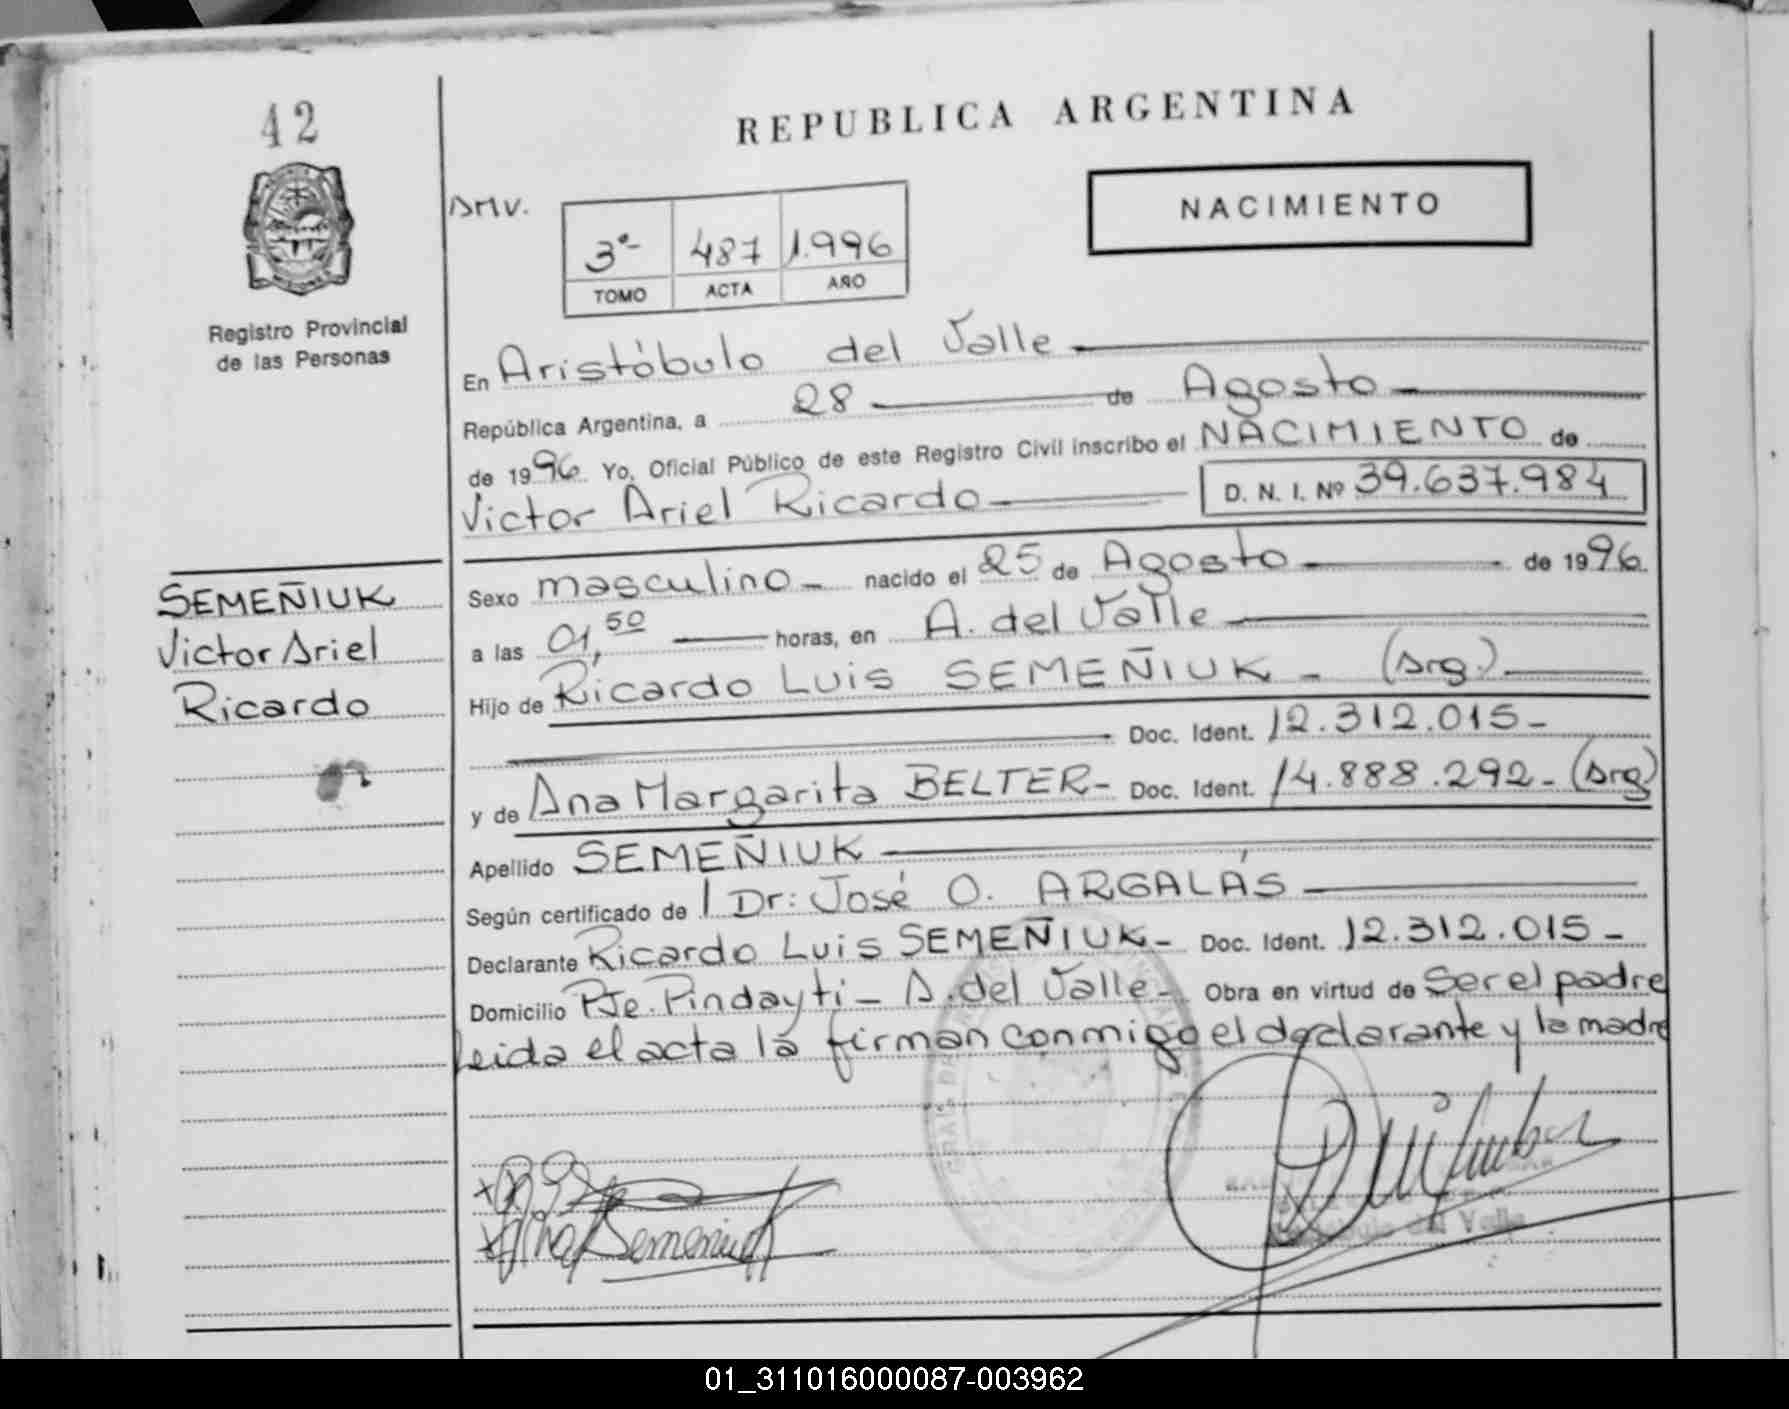 42
REPUBLICA ARGENTINA
NACIMIENTO
DMV.
3º- 487 1.996
TOMO ACTA AÑO
Registro Provincial
de las Personas
En Aristóbulo del Valle
República Argentina, a 28 de Agosto
de 1996 Yo, Oficial Público de este Registro Civil inscribo el NACIMIENTO de
Victor Ariel Ricardo D. N. I. Nº 39.637.984
SEMEÑIUK
Victor Ariel
Ricardo
Sexo masculino nacido el 25 de Agosto de 1996.
a las 01,50 horas, en A. del Valle
Hijo de Ricardo Luis SEMEÑIUK - (Arg.)
Doc. Ident. 12.312.015-
y de Ana Margarita BELTER- Doc. Ident. 14.888.292- (Arg)
Apellido SEMEÑIUK
Según certificado de Dr: José O. ARGALÁS
Declarante Ricardo Luis SEMEÑIUK- Doc. Ident. 12.312.015-
Domicilio Pje. Pindayti - A. del Valle- Obra en virtud de Ser el padre
leida el acta la firman conmigo el declarante y la madre
Semeniuk
del Valle
01_311016000087-003962